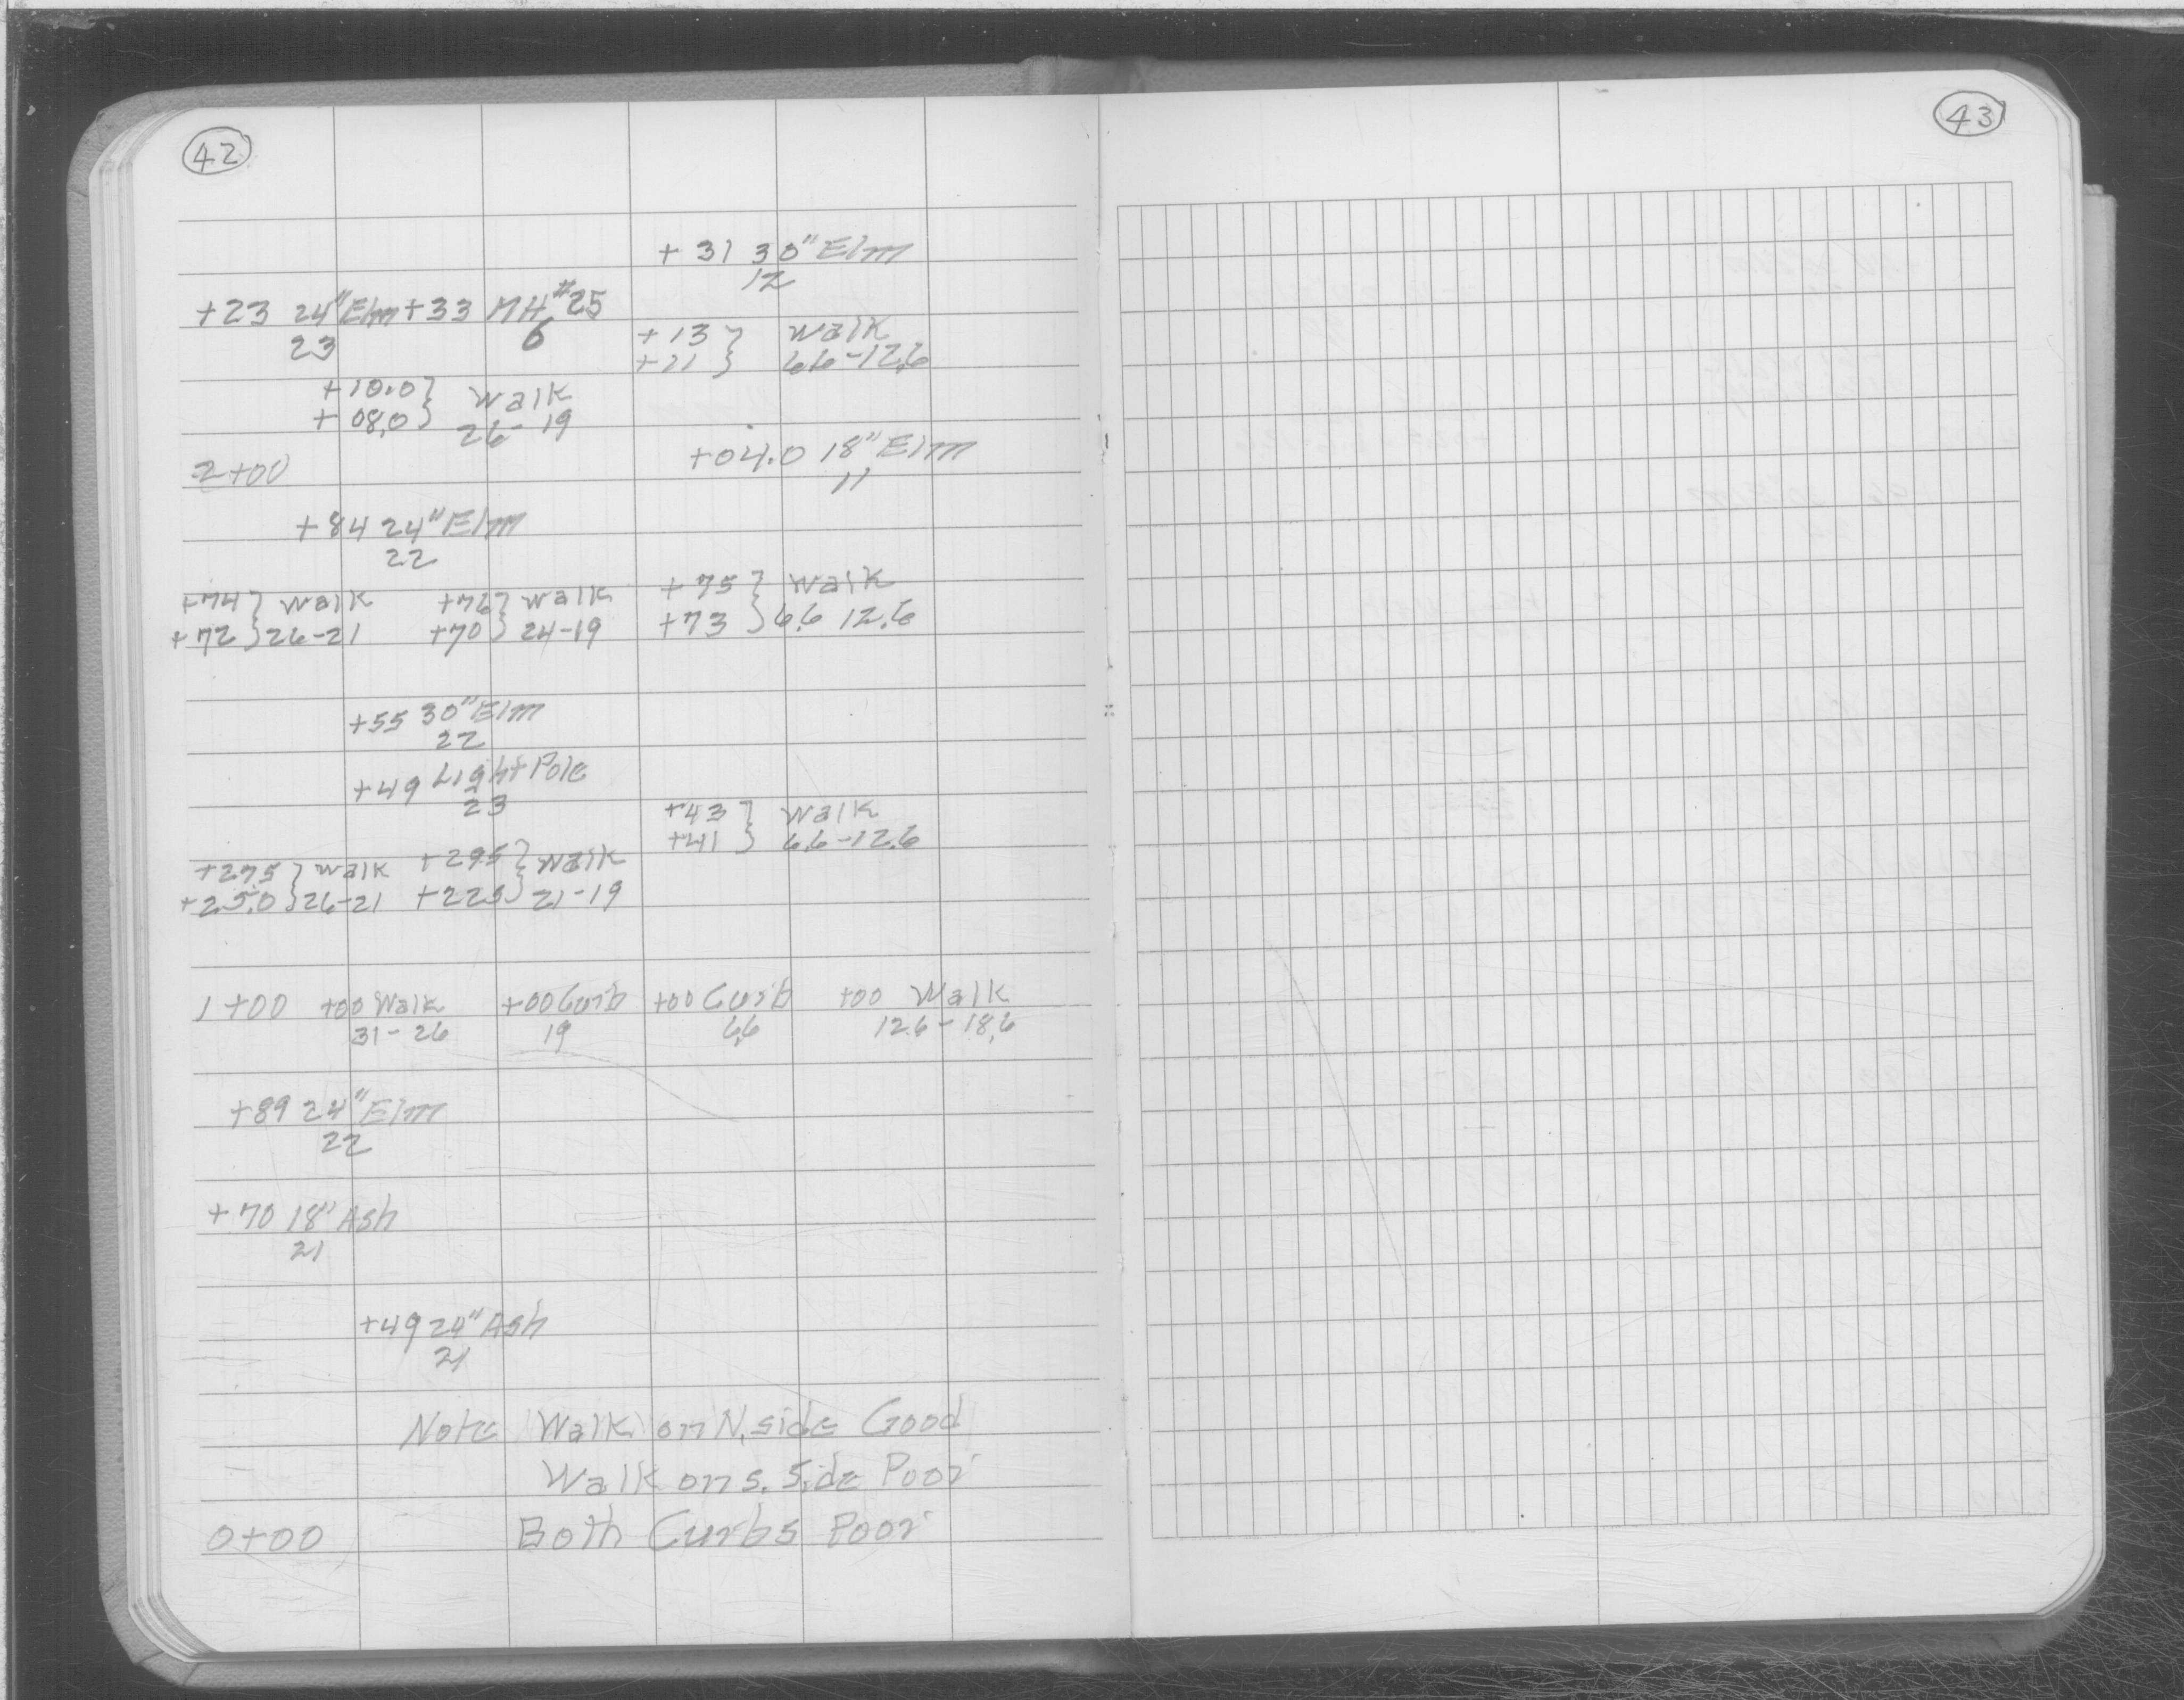 42
43
+31 30" Elm
12
+23 24" Elm +33 MH #25
23 6
+13 } Walk
+11 } 6.6-12.6
+10.0 } Walk
+08.0 } 26-19
2+00 +04.0 18" Elm
11
+84 24" Elm
22
+74 } Walk +76 } Walk +75 } Walk
+72 } 26-21 +70 } 24-19 +73 } 6.6 12.6
+55 30" Elm
22
+49 Light Pole
23
+43 } Walk
+41 } 6.6-12.6
+27.5 } Walk +29.5 } Walk
+25.0 } 26-21 +22.5 } 21-19
1+00 +00 Walk +00 Curb +00 Curb +00 Walk
31-26 19 6.6 12.6-18.6
+89 24" Elm
22
+70 18" Ash
21
+49 24" Ash
21
Note Walk on N. side Good
Walk on S. Side Poor
0+00 Both Curbs Poor